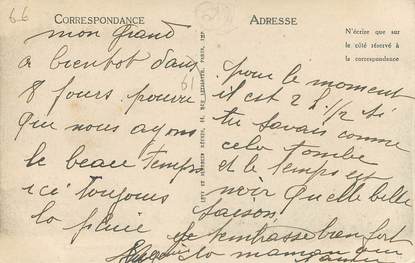 66
CORRESPONDANCE
ADRESSE
N'écrire que sur
le côté réservé à
la correspondance
mon grand
a bientot dans
8 jours pourvu
que nous ayons
le beau temps
ici toujours
la pluie
pour le moment
il est 2 h 1/2 si
tu savais comme
cela tombe
et le temps est
noir quelle belle
saison
je t'embrasse bien fort
ta maman qui
t'aime